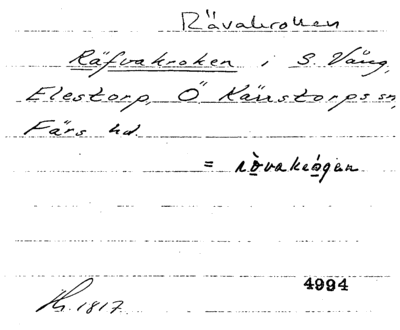 Rävakroken
Räfvakroken i S. Vång,
Elestorp, Ö Kärstorps sn,
Färs hd.
= rò̱vakró̱gan
4994
Hs. 1817